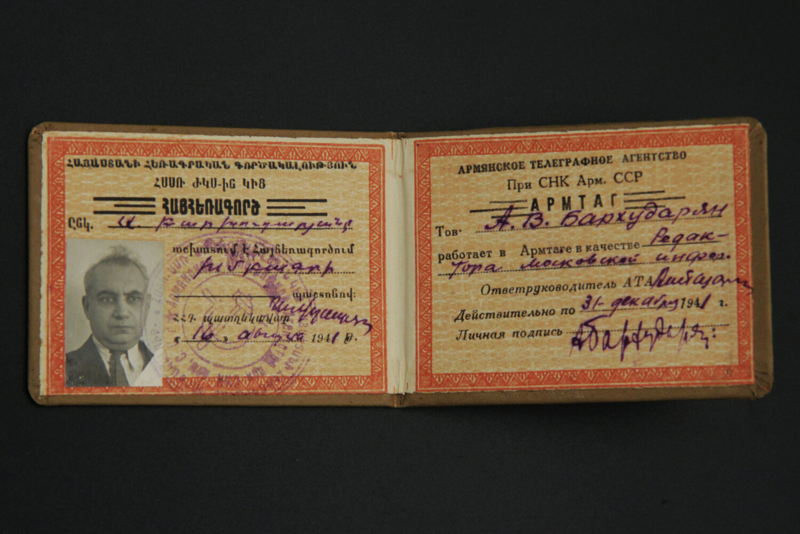 ՀԱՅԱՍՏԱՆԻ ՀԵՌԱԳՐԱԿԱՆ ԳՈՐԾԱԿԱԼՈՒԹՅՈՒՆ
ՀՍՍՌ ԺԿՍ-ԻՑ ԿԻՑ
ՀԱՅՀԵՌԱԳՈՐԾ
Ընկ. Ա.
աշխատում է Հայհեռագործում
պաշտոնով:
ՀՀԳ պատ.ղեկավար
« 16 » августа 1941 թ.
АРМЯНСКОЕ ТЕЛЕГРАФНОЕ АГЕНТСТВО
При СНК Арм. ССР
АРМТАГ
Тов. А. В. Бархударян
работает в Армтаге в качестве Редак-
тора Московской инфор.
Ответруководитель АТА
Действительно по 31 декабря 1941 г.
Личная подпись